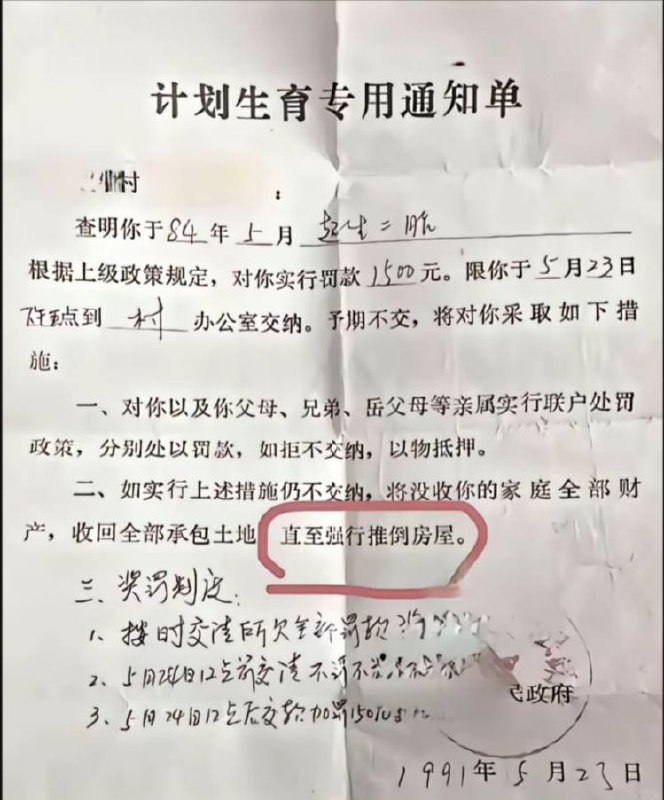 计划生育专用通知单
村：
查明你于84年5月超生二胎
根据上级政策规定，对你实行罚款1500元。限你于5月23日
点到村办公室交纳。予期不交，将对你采取如下措
施：
一、对你以及你父母、兄弟、岳父母等亲属实行联户处罚
政策，分别处以罚款，如拒不交纳，以物抵押。
二、如实行上述措施仍不交纳，将没收你的家庭全部财
产，收回全部承包土地 直至强行推倒房屋。
三、奖罚制度：
1、按时交清所欠全部罚款
2、5月24日12点前交清不罚不
3、5月24日12点后交款加罚150元
民政府
1991年5月23日